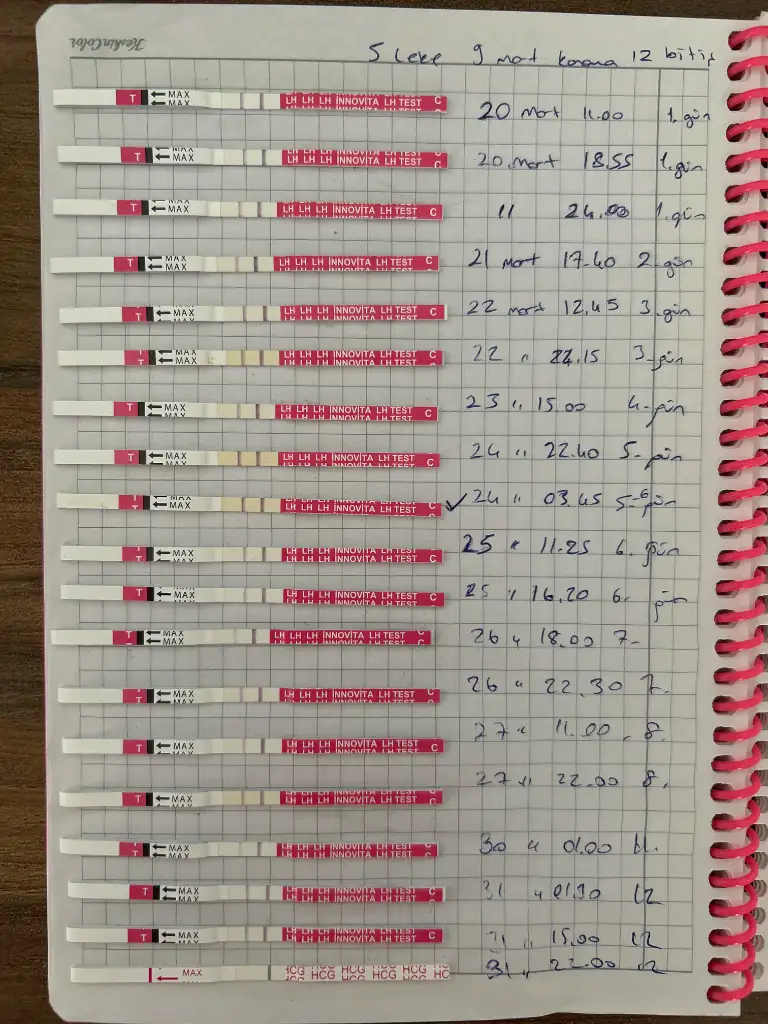 KeskinColor
5 leke 9 mart kanama 12 bitiş
T MAX MAX LH LH LH INNOVITA LH TEST C 20 mart 11.00 1. gün
T MAX MAX LH LH LH INNOVITA LH TEST C 20 mart 18.55 1. gün
T MAX MAX LH LH LH INNOVITA LH TEST C " 24.00 1. gün
T MAX MAX LH LH LH INNOVITA LH TEST C 21 mart 17.40 2. gün
T MAX LH LH LH INNOVITA LH TEST C 22 mart 12.45 3. gün
T MAX MAX LH LH LH INNOVITA LH TEST C 22 " 22.15 3. gün
T MAX LH LH LH INNOVITA LH TEST C 23 " 15.00 4. gün
T MAX LH LH LH INNOVITA LH TEST C 24 " 22.40 5. gün
T MAX MAX LH LH LH INNOVITA LH TEST C ✓ 24 " 03.45 5-6 gün
T MAX LH LH LH INNOVITA LH TEST C 25 " 11.25 6. gün
T MAX LH LH LH INNOVITA LH TEST C 25 " 16.20 6. gün
T MAX MAX LH LH LH INNOVITA LH TEST C 26 " 18.00 7.
T MAX LH LH LH INNOVITA LH TEST C 26 " 22.30 7.
T MAX LH LH LH INNOVITA LH TEST C 27 " 11.00 8.
T MAX LH LH LH INNOVITA LH TEST C 27 " 22.00 8.
T MAX MAX LH LH LH INNOVITA LH TEST C 30 " 01.00 11.
T MAX LH LH LH INNOVITA LH TEST C 31 " 01.30 12
T MAX LH LH LH INNOVITA LH TEST C 31 " 15.00 12
MAX HCG HCG HCG HCG HCG 31 " 22.00 12